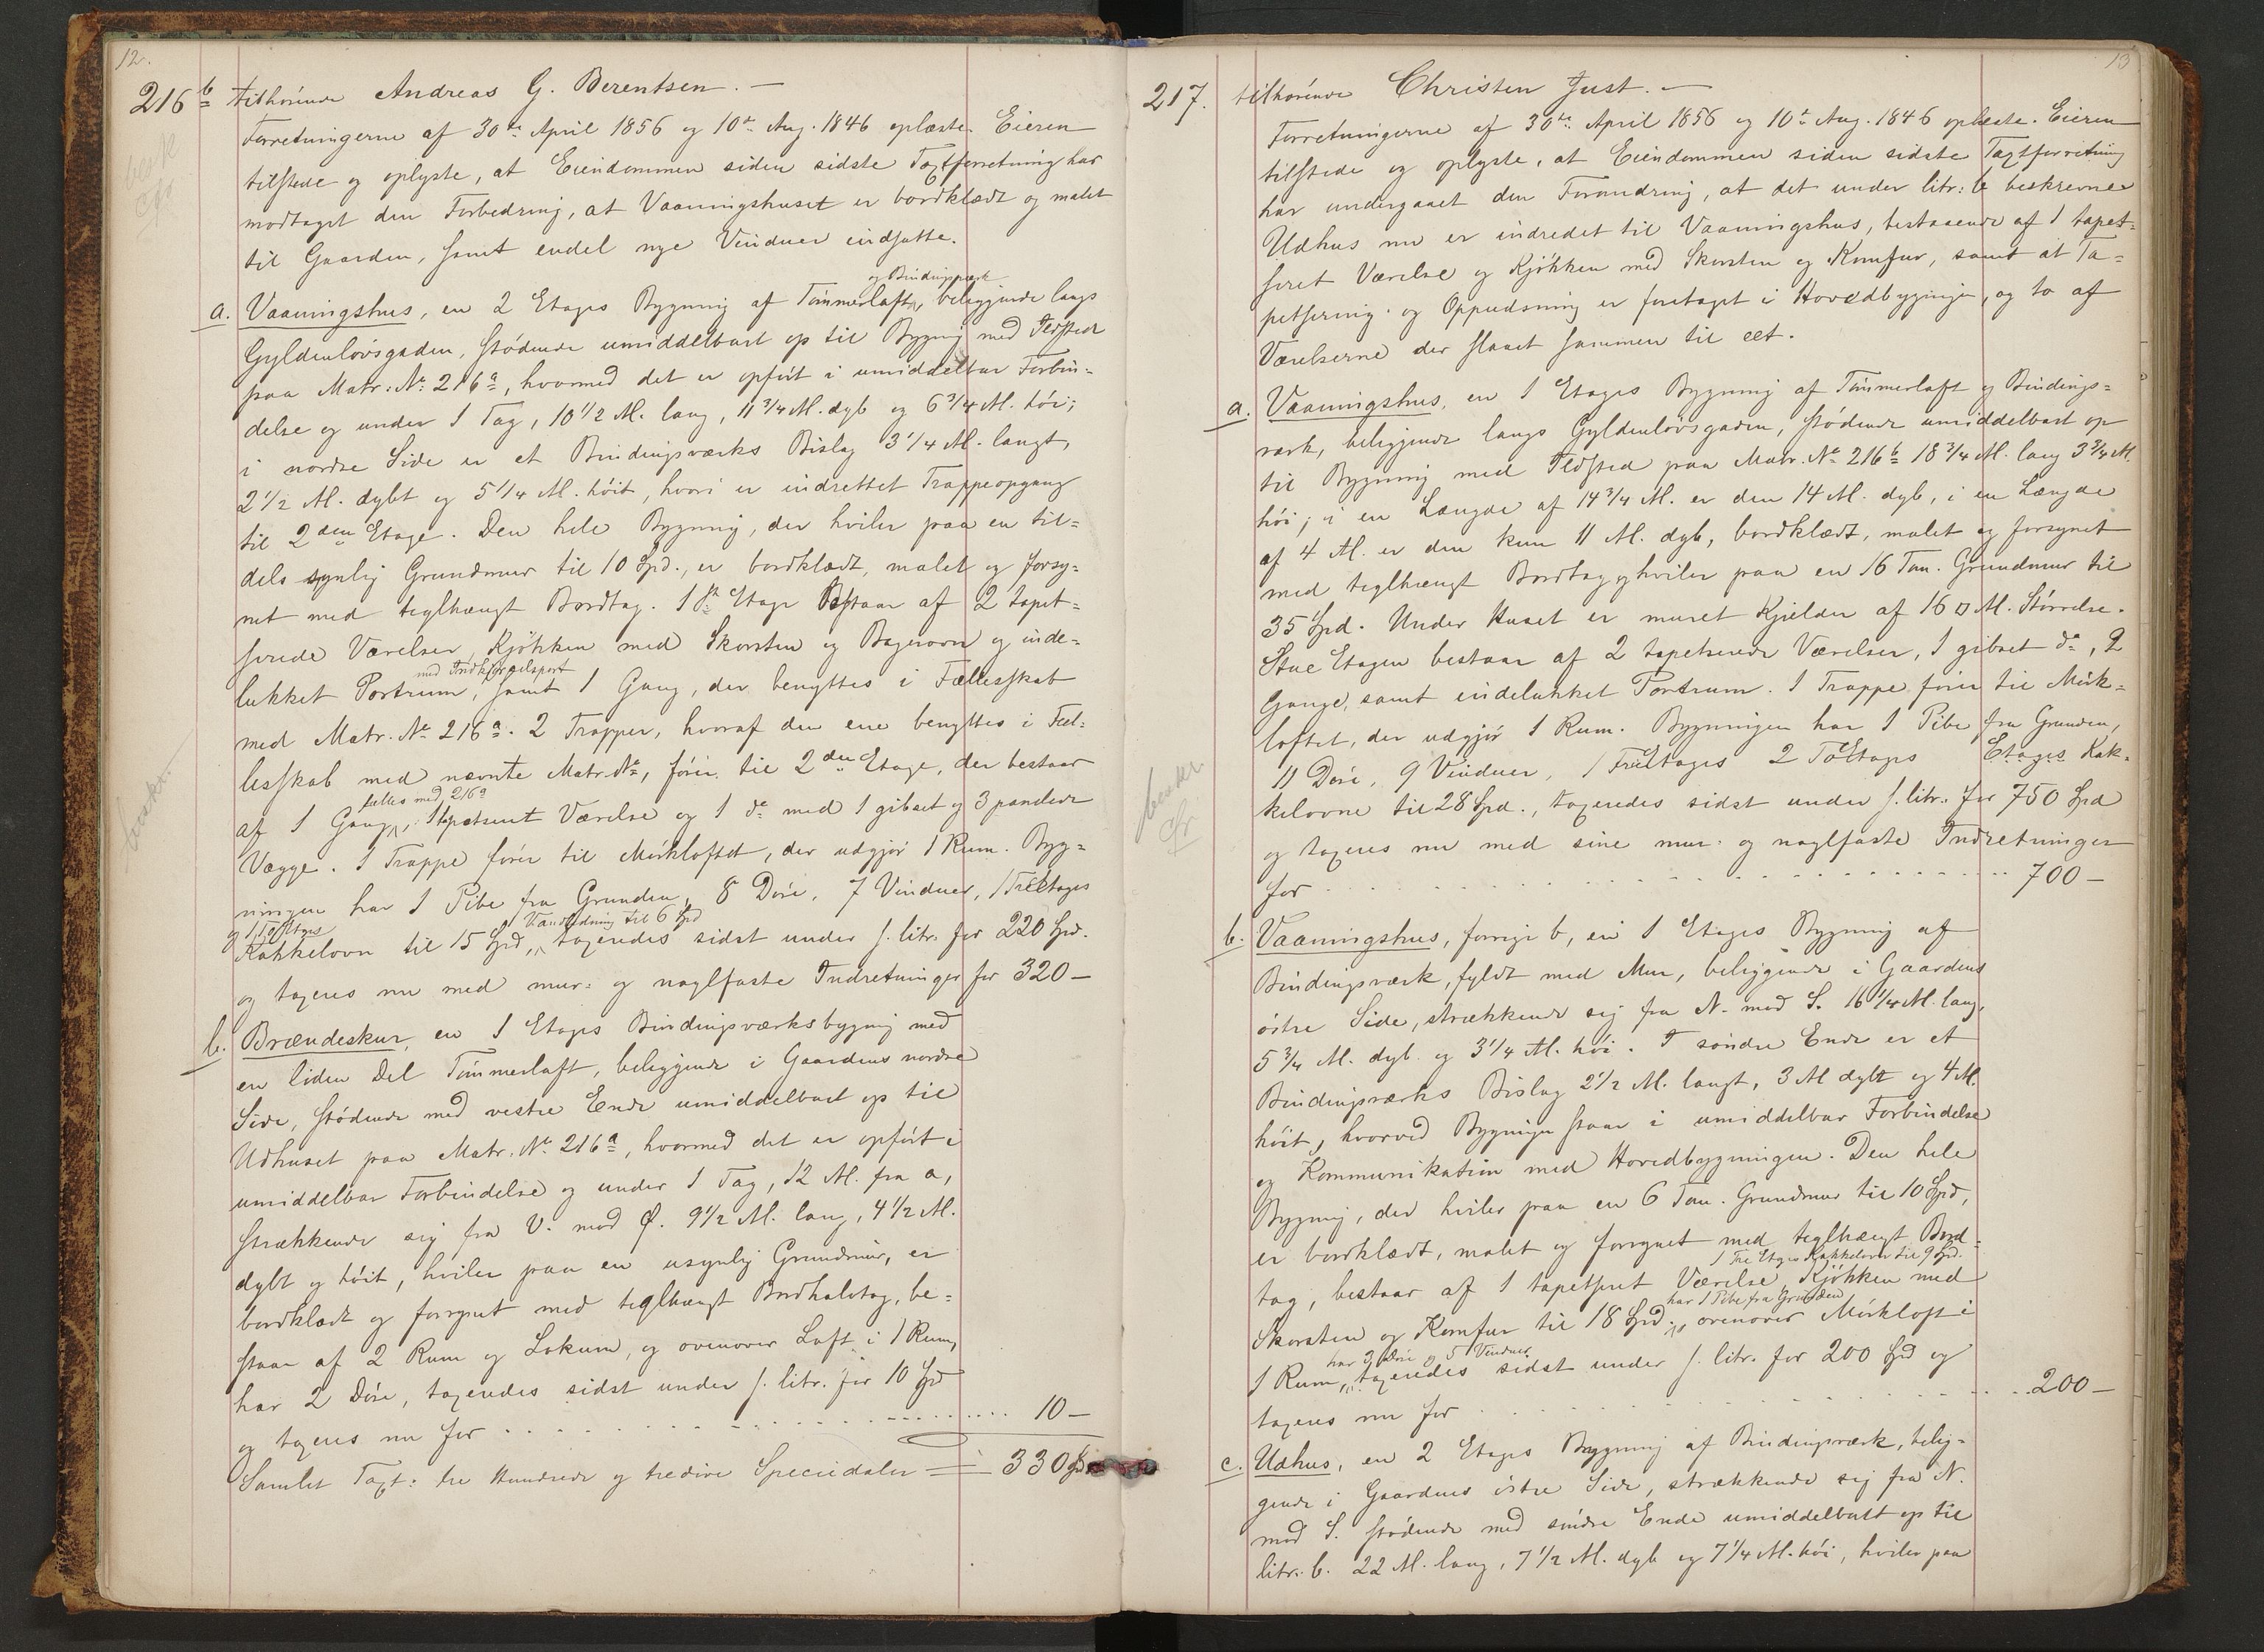 12.
216 b tilhørende Andreas G. Berentsen. —
Forretningerne af 30te April 1856 og 10de Aug. 1846 oplæste. Eieren
tilstede og oplyste, at Eiendommen siden sidste Taxtforretning har
modtaget den Forbedring, at Vaaningshuset er bordklædt og malet
til Gaarden, samt endel nye Vinduer indsatte.
og Bindingsværk
a. Vaaningshus, en 2 Etages Bygning af Tømmerlaft, beliggende langs
Gyldenløvsgaden, stødende umiddelbart op til Bygnig med Ildsted
paa Matr: No 216 a, hvormed det er opført i umiddelbar Forbin-
delse og under 1 Tag, 10 1/2 Al. lang, 11 3/4 Al. dyb og 6 3/4 Al. høi;
i nordre Side er et Bindingsværks Bislag 3 1/4 Al. langt,
2 1/2 Al. dybt og 5 1/4 Al. høit, hvori er indrettet Trappeopgang
til 2den Etage. Den hele Bygning, der hviler paa en til-
dels synlig Grundmur til 10 Spd., er bordklædt, malet og forsy-
net med teglhængt Bordtag. 1ste Etage bestaar af 2 tapet-
serede Værelser, Kjøkken med Skorsten og Bagerovn og inde-
med Indkjørselsport
lukket Portrum, samt 1 Gang, der benyttes i Fællesskab
med Matr. No 216 a. 2 Trapper, hvoraf den ene benyttes i Fæl-
lesskab med nævnte Matr. No, fører til 2den Etage, der bestaar
fælles med 216 a
af 1 Gang, 1 tapetseret Værelse og 1 do med 1 gibset og 3 panelede
Vægge. 1 Trappe fører til Mørkloftet, der udgjør 1 Rum. Byg-
ningen har 1 Pibe fra Grunden, 8 Døre, 7 Vinduer, 1 TreEtages
og 1 To Etages 1 Vandledning til 6 Spd
Kakkelovn til 15 Spd, taxeredes sidst under s. litr. for 220 Spd.
og taxeres nu med mur- og naglfaste Indretninger for 320 —
b. Brændeskur, en 1 Etages Bindingsværksbygnig med
en liden Del Tømmerlaft, beliggende i Gaardens nordre
Side, stødende med vestre Ende umiddelbart op til
Udhuset paa Matr. No 216 a, hvormed det er opført i
umiddelbar Forbindelse og under 1 Tag, 12 Al. fra a,
strækkende sig fra V. mod Ø. 9 1/2 Al. lang, 4 1/2 Al.
dybt og høit, hviler paa en usynlig Grundmur, er
bordklædt og forsynet med teglhængt Bordhalvtag, be-
staar af 2 Rum og Lokum, og ovenover Loft i 1 Rum,
har 2 Døre, taxeredes sidst under s. litr. for 10 Spd
og taxeres nu for . . . . . . . . . . 10 —
Samlet Taxt: tre Hundrede og tredive Speciedaler = 330 Spd.
13
217. tilhørende Christen Just. —
Forretningerne af 30te April 1856 og 10de Aug. 1846 oplæste. Eieren
tilstede og oplyste, at Eiendommen siden sidste Taxtforretning
har undergaaet den Forandring, at det under litr: b beskrevne
Udhus nu er indredet til Vaaningshus, bestaaende af 1 tapet-
seret Værelse og Kjøkken med Skorsten og Komfur, samt at Ta-
petsering og Oppudsning er foretaget i Hovedbygningen, og to af
Værelserne der slaaet sammen til eet.
a. Vaaningshus, en 1 Etages Bygning af Tømmerlaft og Bindings-
værk, beliggende langs Gyldenløvsgaden, stødende umiddelbart op
til Bygning med Ildsted paa Matr. No 216 b 18 3/4 Al. lang 3 3/4 Al.
høi; i en Længde af 14 3/4 Al. er den 14 Al. dyb, i en Længde
af 4 Al. er den kun 11 Al. dyb, bordklædt, malet og forsynet
med teglhængt Bordtag og hviler paa en 16 Tom. Grundmur til
35 Spd. Under Huset er muret Kjelder af 16 □ Al. Størrelse.
Stue Etagen bestaar af 2 tapetserede Værelser, 1 gibset do, 2
Gange, samt indelukket Portrum. 1 Trappe fører til Mørk-
loftet, der udgjør 1 Rum. Bygningen har 1 Pibe fra Grunden,
11 Døre, 9 Vinduer, 1 FireEtages 2 ToEtages Etages Kak-
kelovne til 28 Spd., taxeredes sidst under s. litr. for 750 Spd
og taxeres nu med sine mur- og naglfaste Indretninger
for . . . . . . . . . . 700 —
b. Vaaningshus, forrige b, en 1 Etages Bygning af
Bindingsværk, fyldt med Mur, beliggende i Gaardens
østre Side, strækkende sig fra N. mod S. 16 1/4 Al. lang,
5 3/4 Al. dyb og 3 1/4 Al. høi. I søndre Ende er et
Bindingsværks Bislag 2 1/2 Al. langt, 3 Al dybt og 4 Al.
høit, hvorved Bygningen staar i umiddelbar Forbindelse
og Kommunikation med Hovedbygningen. Den hele
Bygning, der hviler paa en 6 Tom. Grundmur til 10 Spd,
er bordklædt, malet og forsynet med teglhængt Bord-
1 Tre Etages Kakkelovn til 9 Spd.
tag, bestaar af 1 tapetseret Værelse, Kjøkken med
har 1 Pibe fra Grunden
Skorsten og Komfur til 18 Spd., ovenover Mørkloft i
har 3 Døre og 5 Vinduer
1 Rum, taxeredes sidst under s. litr. for 200 Spd og
taxeres nu for . . . . . . . . . . 200 —
c. Udhus, en 2 Etages Bygning af Bindingsværk, belig-
gende i Gaardens østre Side, strækkende sig fra N.
mod S. stødende med søndre Ende umiddelbart op til
litr. b. 22 Al. lang, 7 1/2 Al. dyb og 7 1/4 Al. høi, hviler paa